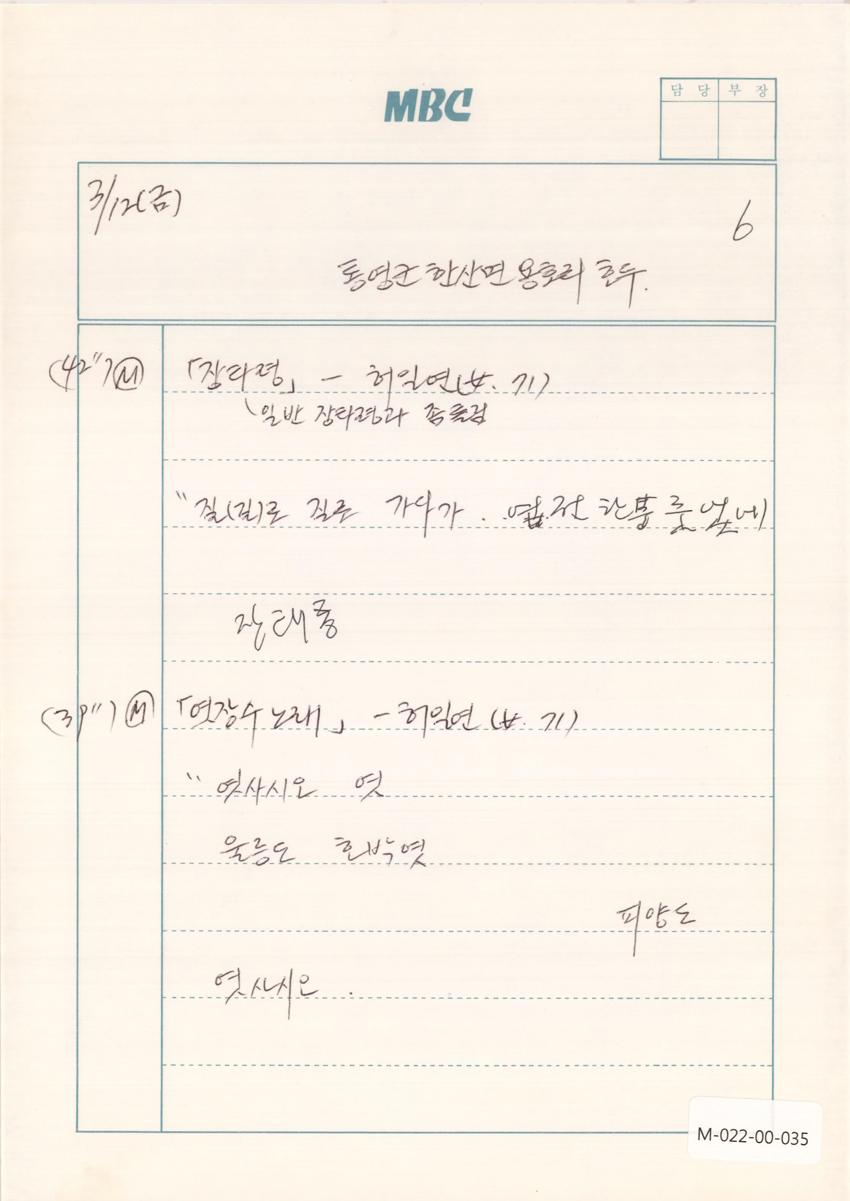 MBC
담 당 부 장
3/12(금)
6
통영군 한산면 용호리 호두.
(42") Ⓜ 「장타령」 - 허일연(女. 71)
일반 장타령과 좀 틀림
"질(길)로 질로 가다가. 엽전 한 푼
(39") Ⓜ 「엿장수 노래」 - 허일연 (女. 71)
"엿사시오 엿
울릉도 호박엿
피양도
엿사시오.
M-022-00-035